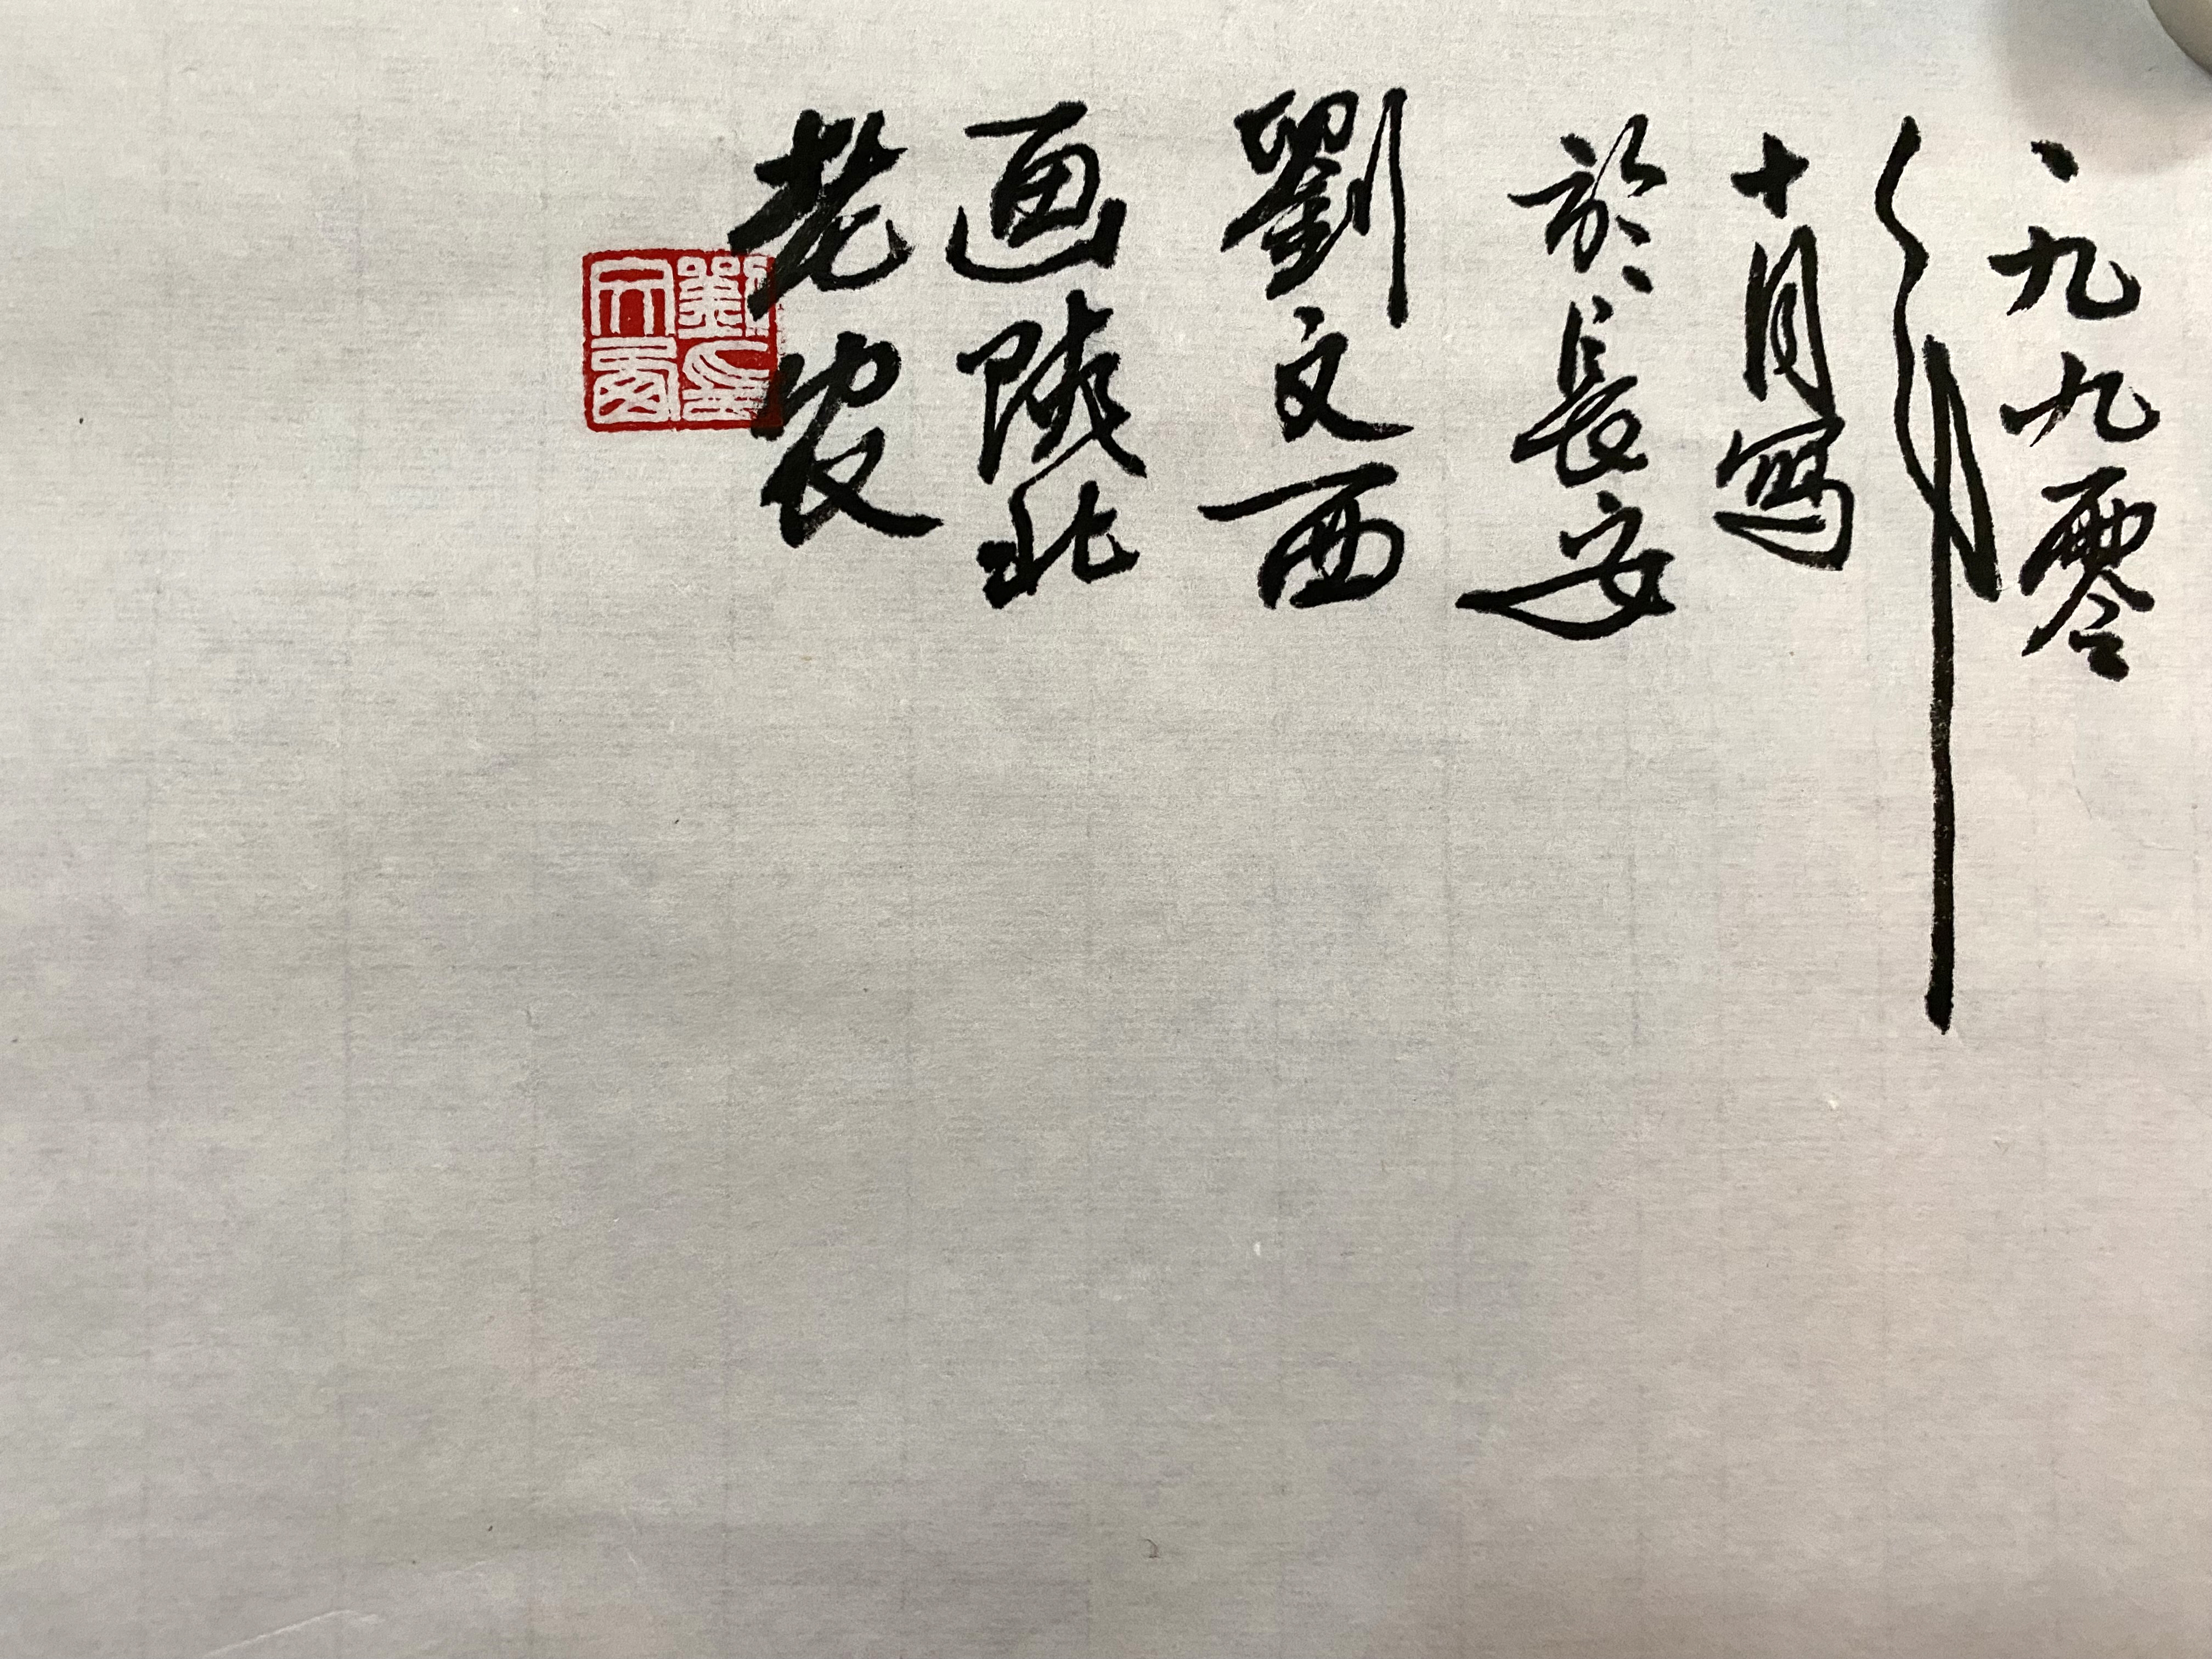 一九九零
年
十月寫
於長安
劉文西
画陝北
老农
劉文西印